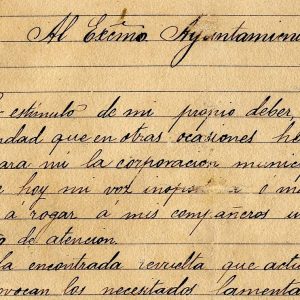 Al Exćmo. Ayuntamien
estimulo de mi propio deber,
dad que en otras ocasiones h
ara mi la corporacion munici
hoy mi voz inop
á rogar á mis compañeros u
o de atencion.
la encontrada revuelta que act
vocan los necesitados lamenta